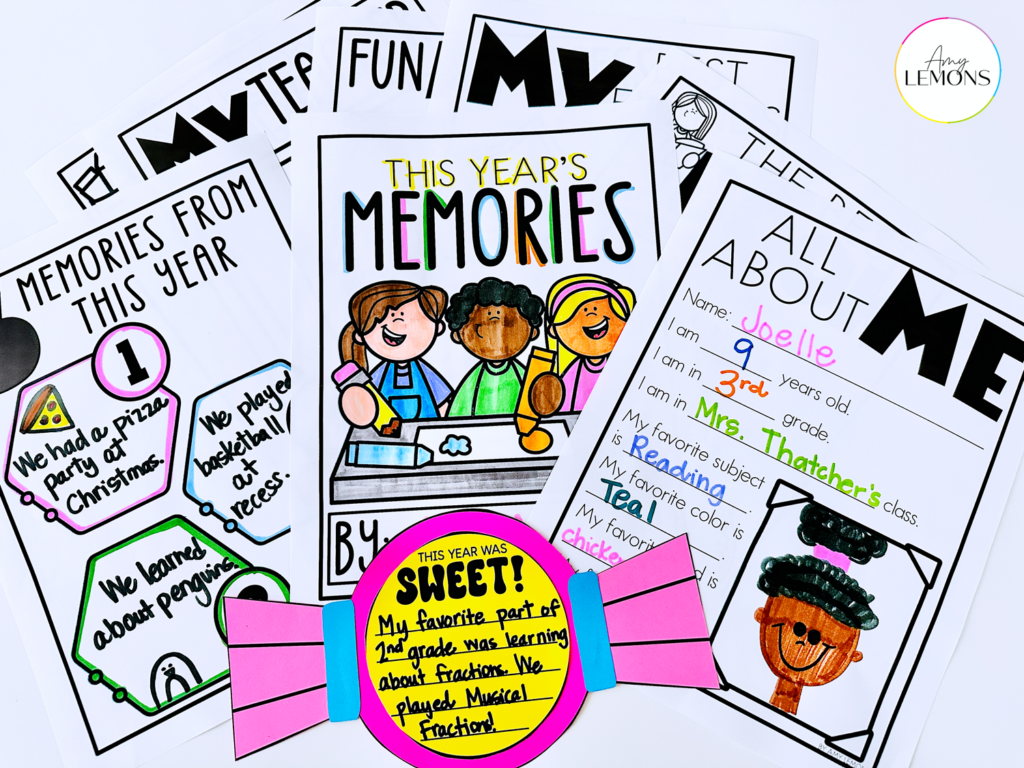 Amy
LEMONS
MY TEA
FUN
MY
THE
MEMORIES FROM
THIS YEAR
1
We had a pizza
party at
Christmas.
We played
basketball
at
recess.
We learned
about penguins.
THIS YEAR'S
MEMORIES
BY:
ALL
ABOUT
ME
Name: Joelle
I am 9 years old.
I am in 3rd grade.
I am in Mrs. Thatcher's class.
My favorite subject
is Reading.
My favorite color is
Teal.
My is
THIS YEAR WAS
SWEET!
My favorite part of
2nd grade was learning
about fractions. We
played Musical
Fractions!